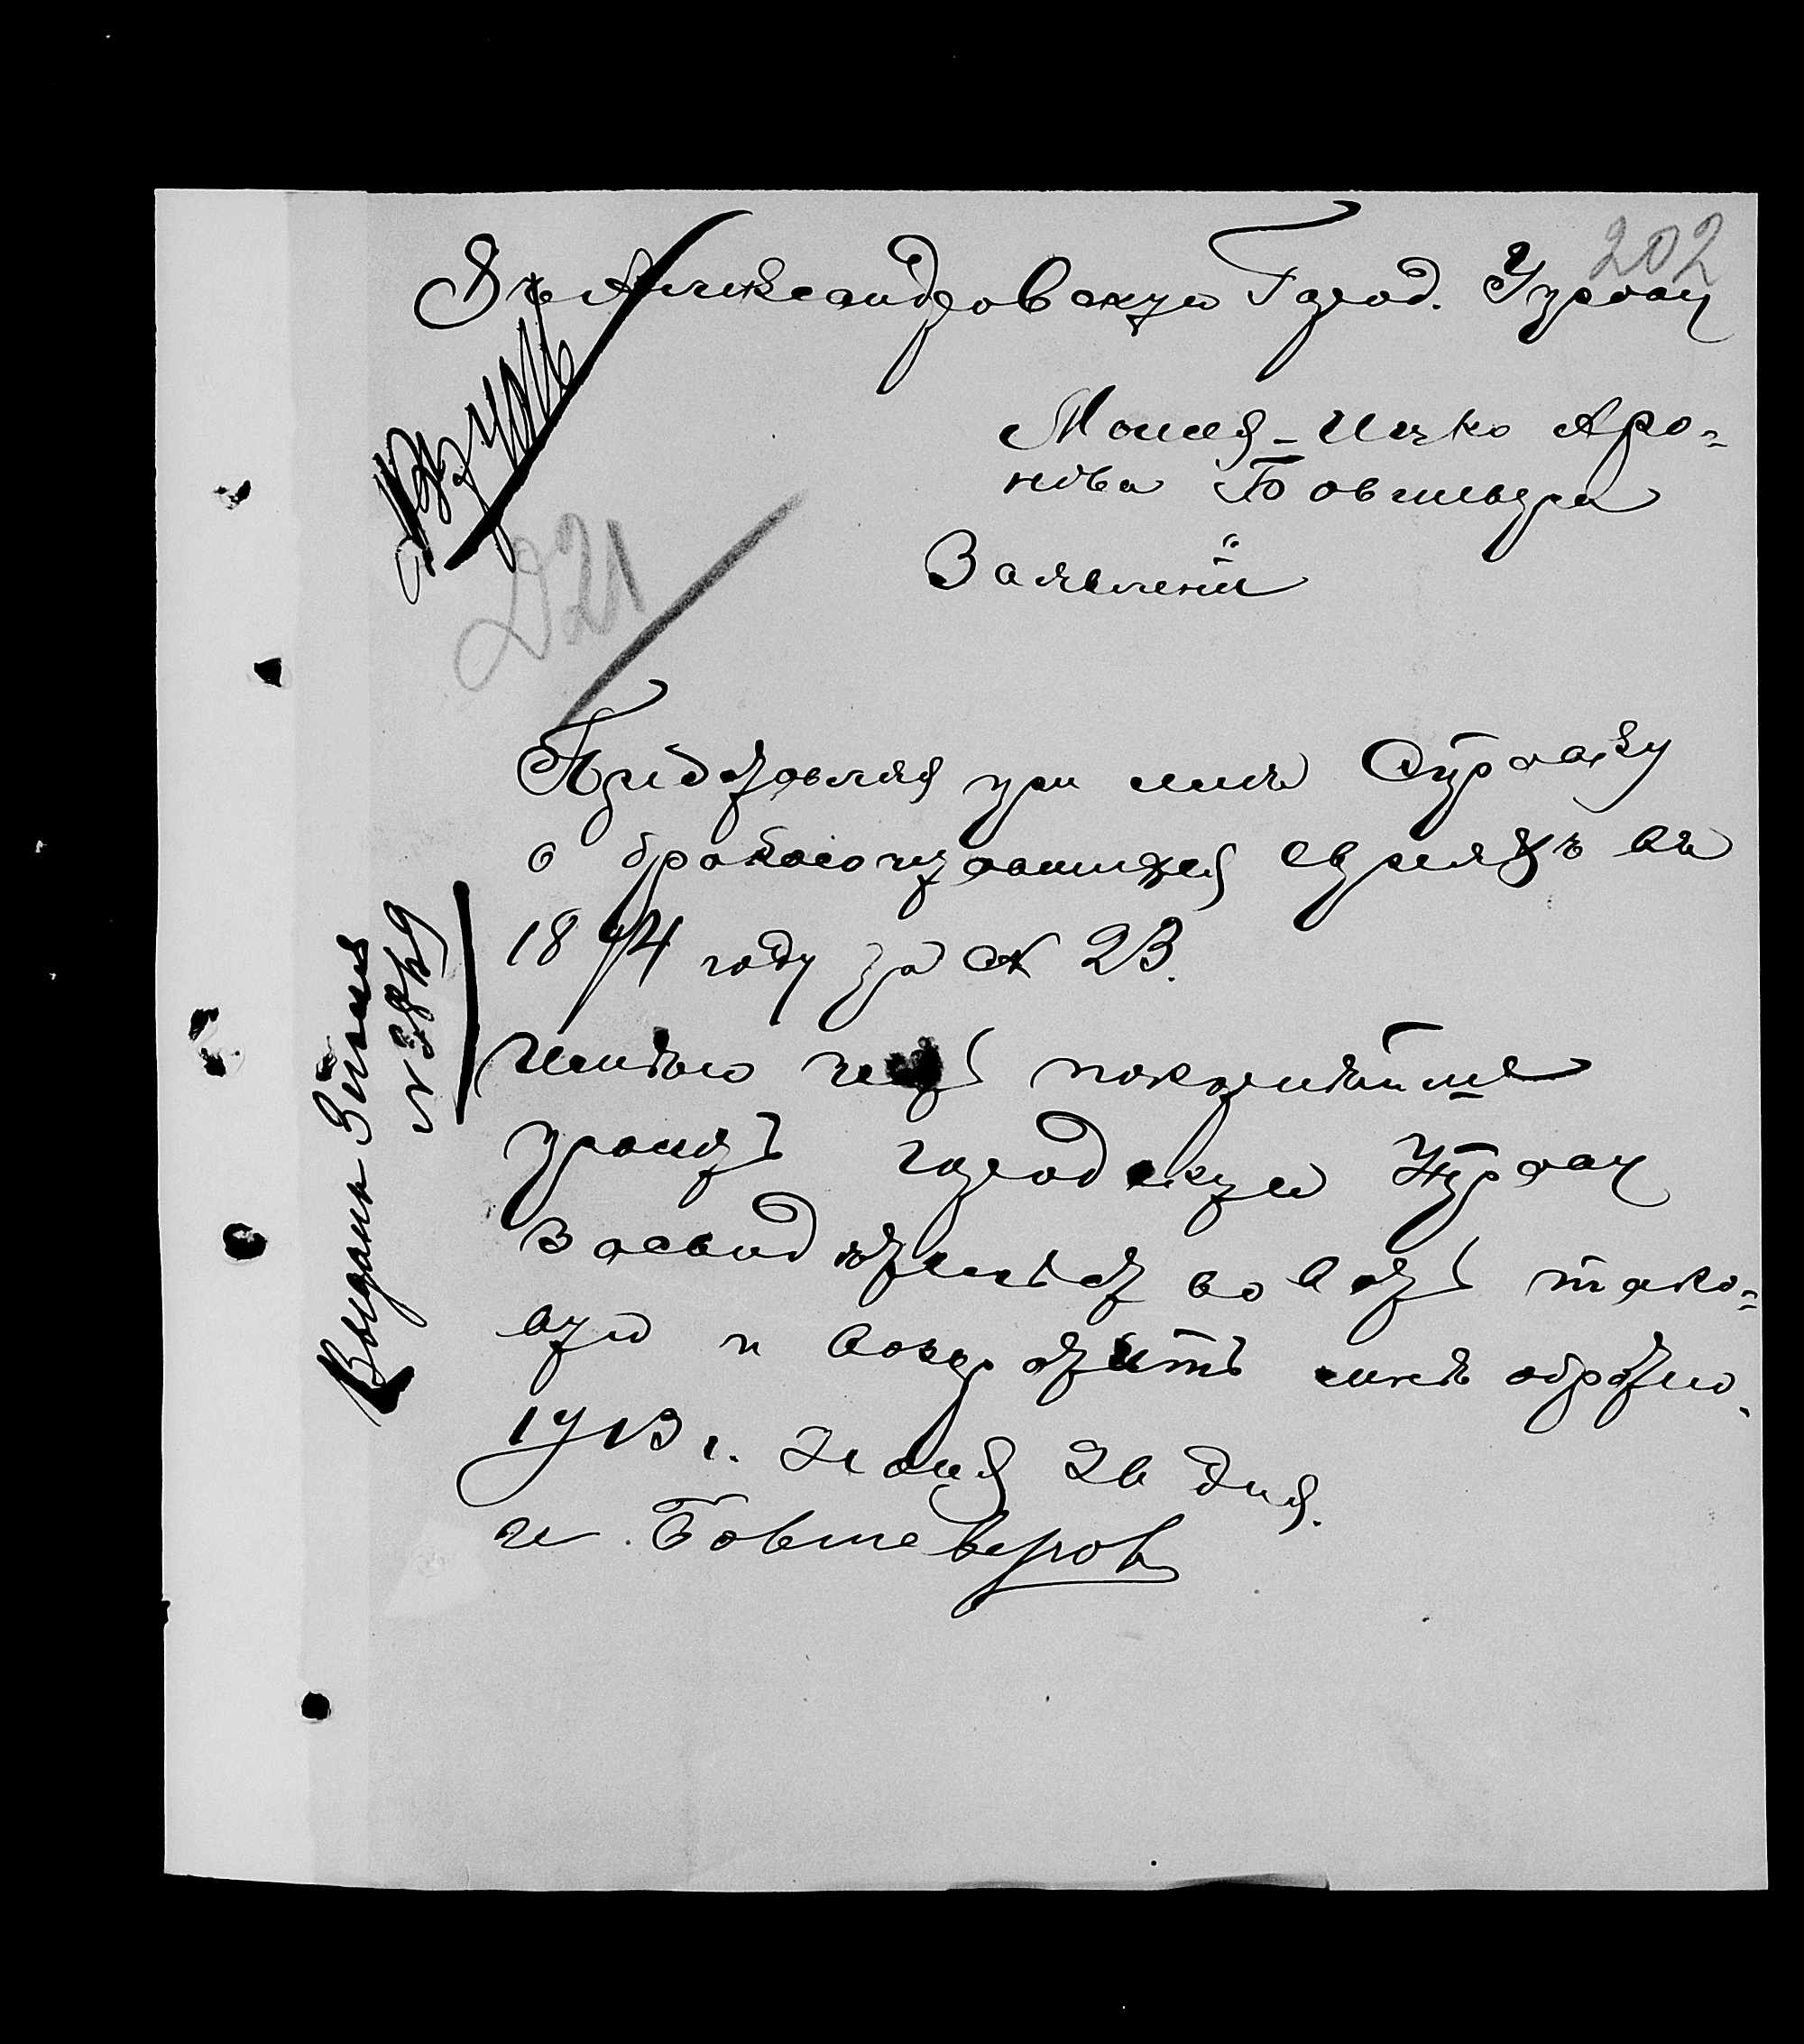 202
Въ Александровскую Город. Управу
Моисея-Ицко Аро-
нова Бовшевера
Заявленіе
221
Представляя при семъ Справку
о бракосочетавшихся евреяхъ въ
1874 году за № 23.
Имѣю честь покорнѣйше
просить городскую Управу
засвидѣтельств тако-
вую и возвратить мнѣ обратно.
1913 г. Июня 26 дня.
и. Бовшеверов
Выданъ 3 іюля
№ 3849